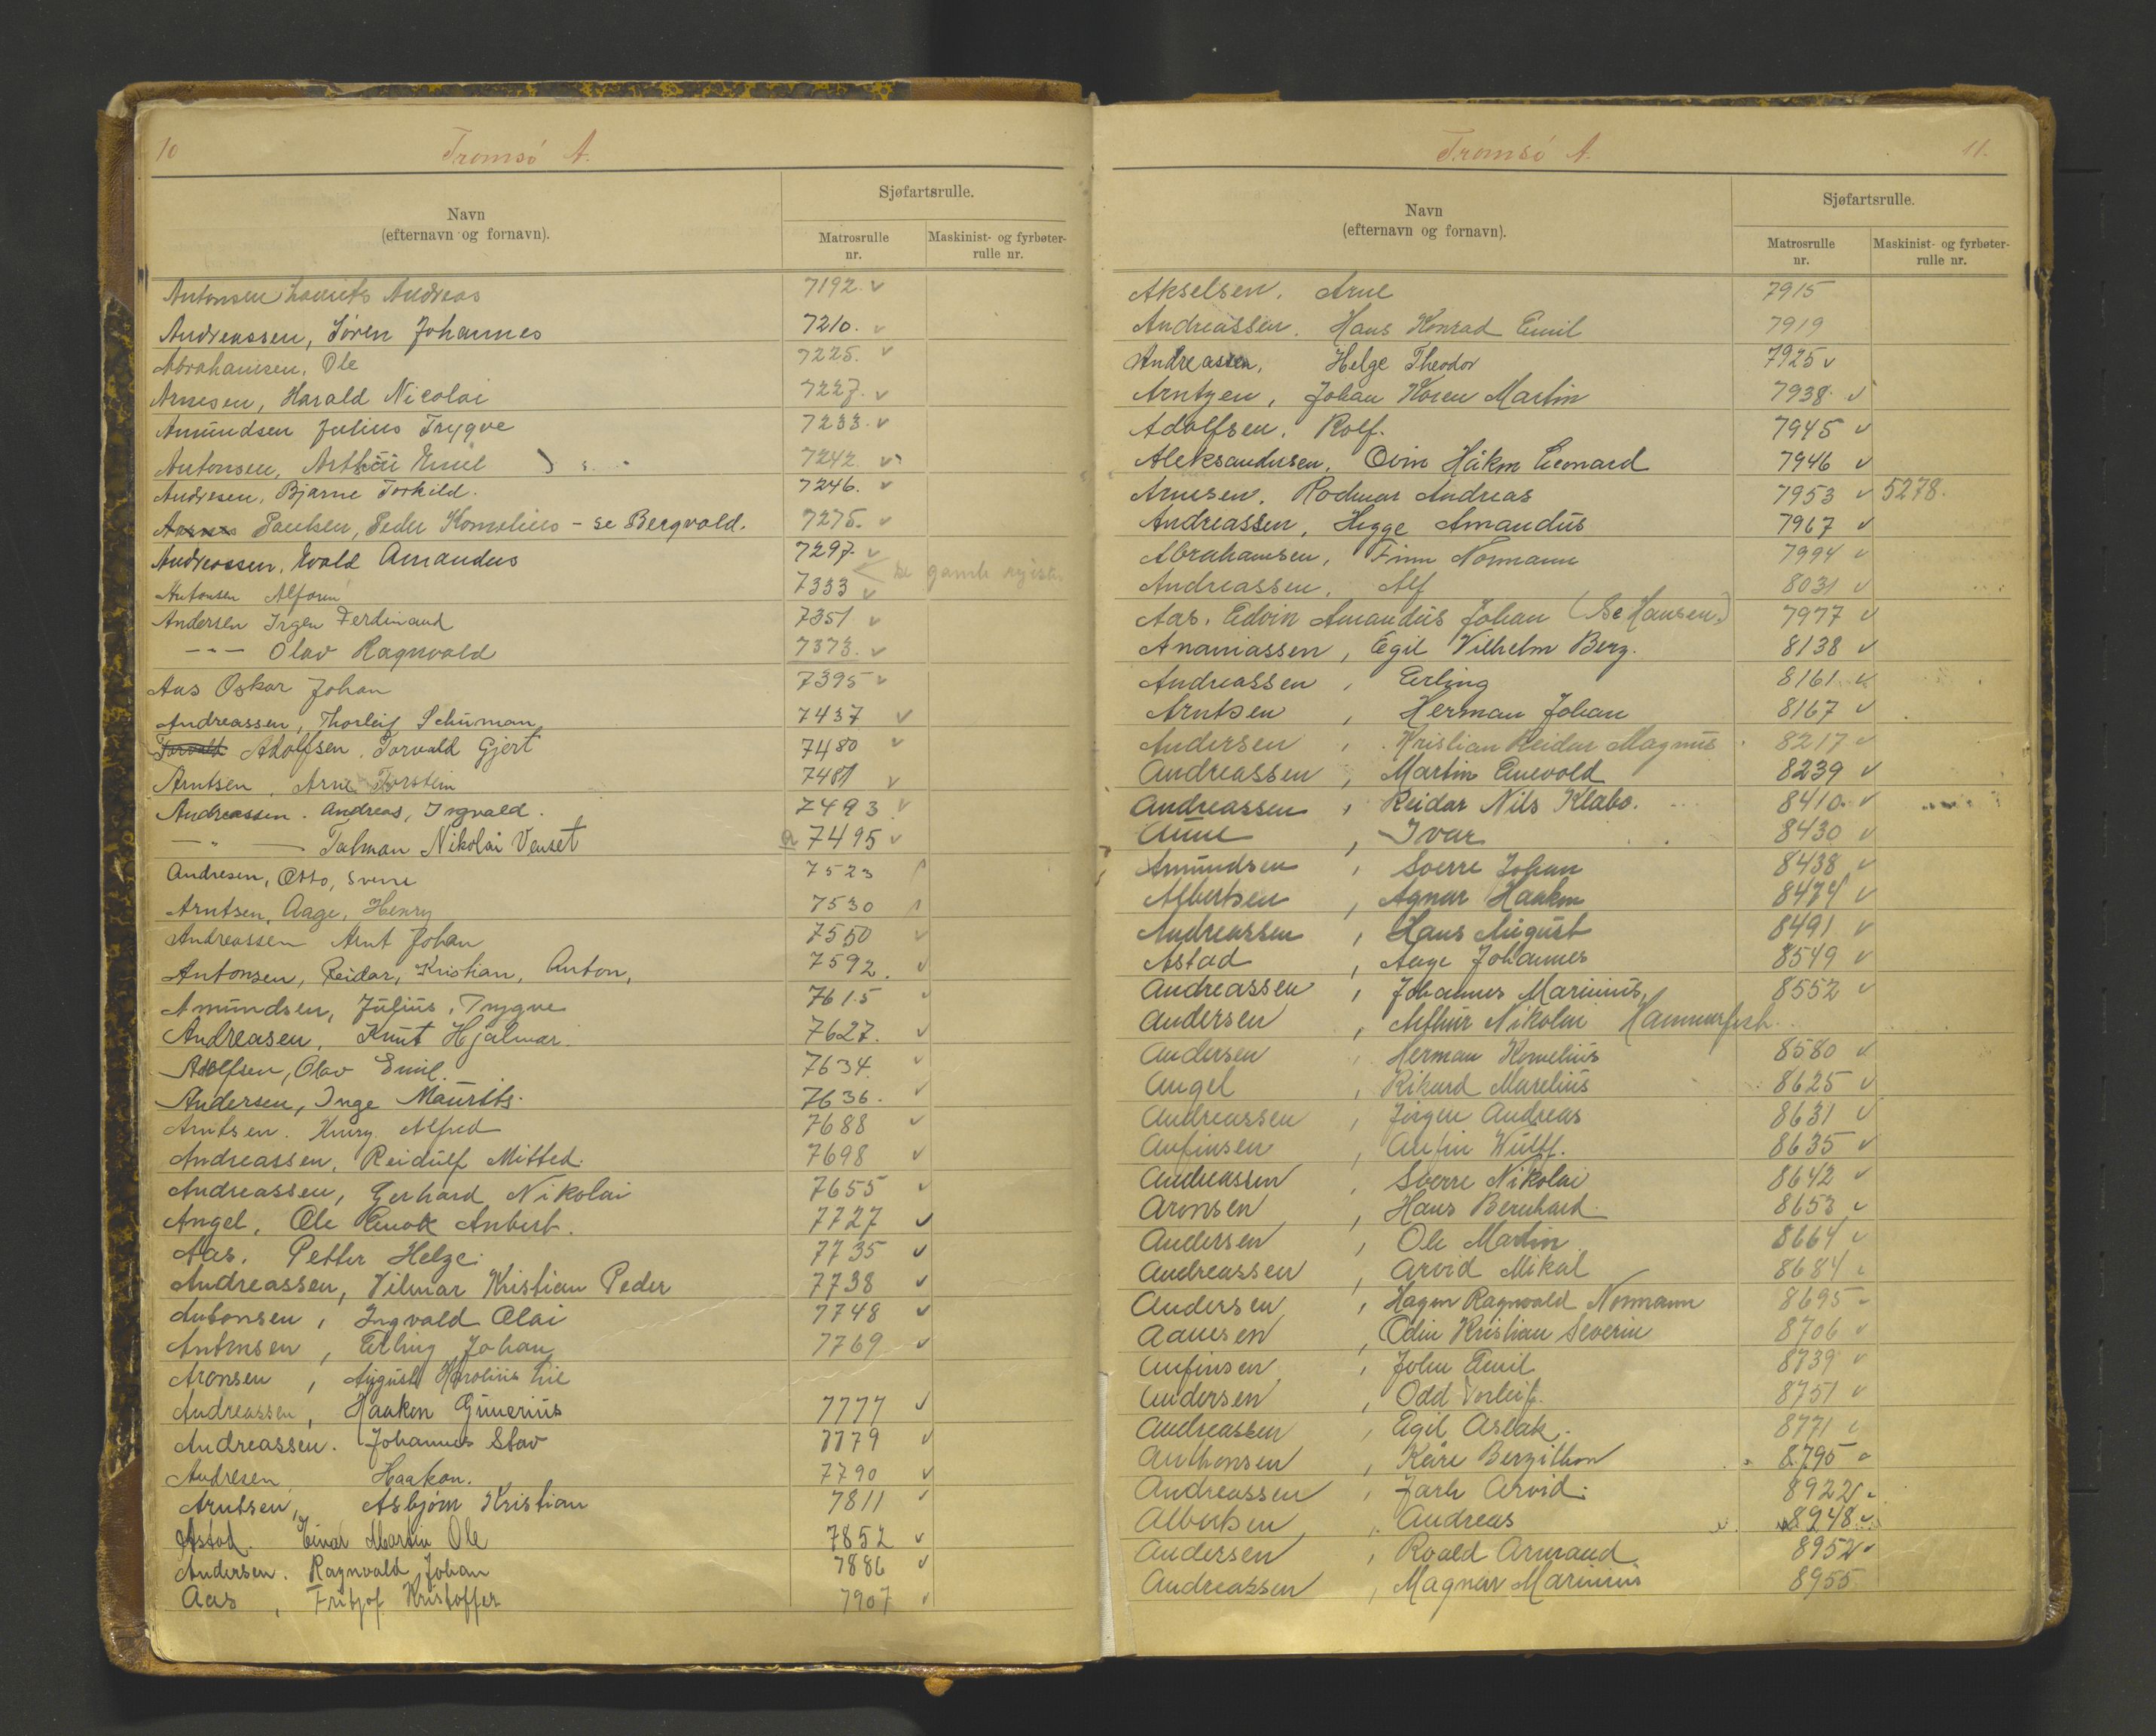 10
Tromsø A.
Navn
(efternavn og fornavn).
Sjøfartsrulle.
Matrosrulle
nr.
Maskinist- og fyrbøter-
rulle nr.
Antonsen Laurits Andreas 7192. v
Andreassen, Søren Johannes 7210. v
Abrahamsen, Ole 7225. v
Arnesen, Harald Nicolai 7227. v
Amundsen Julius Trygve 7233. v
Antonsen, Arthur Emil 7242. v
Andresen, Bjarne Torkild. 7246. v
Paulsen, Peder Kornelius - se Bergvold. 7275. v
Andreassen, Evald Amandus 7297. v
Antonsen Alforn 7333 v se gamle
Andersen Irgen Ferdinand 7351 v
--- Olav Ragnvald 7373. v
Aas Oskar Johan 7395 v
Andreassen, Thorleif Schuman 7437 v
Torvald Adolfsen, Torvald Gjert 7480 v
Arntsen, Arne Torstein 7481 v
Andreassen. Andreas, Ingvald. 7493 v
— " — Talman Nikolai Venset 7495 v
Andresen, Otto, Sverre 7523
Arntsen, Aage, Henry 7530
Andreassen Arnt Johan 7550 v
Antonsen, Reidar, Kristian, Anton, 7592. v
Amundsen, Julius, Trygve 7615 v
Andreasen, Knut Hjalmar. 7627. v
Adolfsen, Olav Emil. 7634. v
Andersen, Inge Maurits. 7636. v
Arntsen. Henry. Alfred 7688 v
Andreassen, Reidulf Mitted. 7698 v
Andreassen, Gerhard Nikolai 7655 v
Angel, Ole Enok Anbert. 7727 v
Aas. Petter Helge. 7735 v
Andreassen, Vilmar Kristian Peder 7738 v
Antonsen, Ingvald Olai 7748 v
Antonsen, Erling Johan 7769 v
Aronsen, August Karolius
Andreassen, Haakon Gunerius 7777 v
Andreassen. Johannes Stav 7779 v
Andresen Haakon. 7790 v
Arntsen, Asbjørn Kristian 7811 v
Astad. Einar Martin Ole 7852 v
Andersen. Ragnvald Johan 7886 v
Aas, Fritjof Kristoffer 7907 v
Tromsø A. 11.
Navn
(efternavn og fornavn).
Sjøfartsrulle.
Matrosrulle
nr.
Maskinist- og fyrbøter-
rulle nr.
Akselsen, Arne 7915
Andreassen, Hans Konrad Emil 7919
Andreassen, Helge Theodor 7925 v
Arntzen, Johan Koren Martin 7938. v
Adolfsen, Rolf. 7945 v
Aleksandersen, Ovin Håkon Leonard 7946 v
Arnesen, Rodmar Andreas 7953 v 5278.
Andreassen, Hegge Amandus 7967 v
Abrahamsen, Finn Normann 7994 v
Andreassen, Alf 8031 v
Aas, Edvin Amandus Johan (Se Hansen.) 7977 v
Ananiassen, Egil Vilhelm Berg. 8138 v
Andreassen, Erling 8161 v
Arntsen, Herman Johan 8167 v
Andersen, Kristian Reidar Magnus 8217 v
Andreassen, Martin Enevold 8239 v
Andreassen, Reidar Nils Klabo. 8410. v
Aune, Ivar 8430 v
Amundsen, Sverre Johan 8438 v
Albertsen, Agnar Haakon 8474 v
Andreassen, Hans August 8491 v
Astad, Aage Johannes 8549 v
Andreassen, Johannes Marinius, 8552 v
Andersen, Arthur Nikolai Hammerfest.
Andersen, Herman Kornelius 8580 v
Angel, Rikard Marelius 8625 v
Andreassen, Jørgen Andreas 8631 v
Anfinsen, Anfin Wulff. 8635 v
Andreassen, Sverre Nikolai 8642 v
Aronsen, Hans Bernhard. 8653 v
Andersen, Ole Martin 8664 v
Andreassen, Arvid Mikal 8684 v
Andersen, Hagen Ragnvald Normann 8695 v
Aanesen, Odin Kristian Severin 8706 v
Anfinsen, John Emil 8739 v
Andersen, Odd Torleif. 8751 v
Andreassen, Egil Aslak. 8771 v
Anthonsen, Kåre Bergithon 8795 v
Andreassen, Jarle Arvid. 8922 v
Albertsen, Andreas 8948 v
Andersen, Roald Armand 8952 v
Andreassen, Magnar Marinius 8955